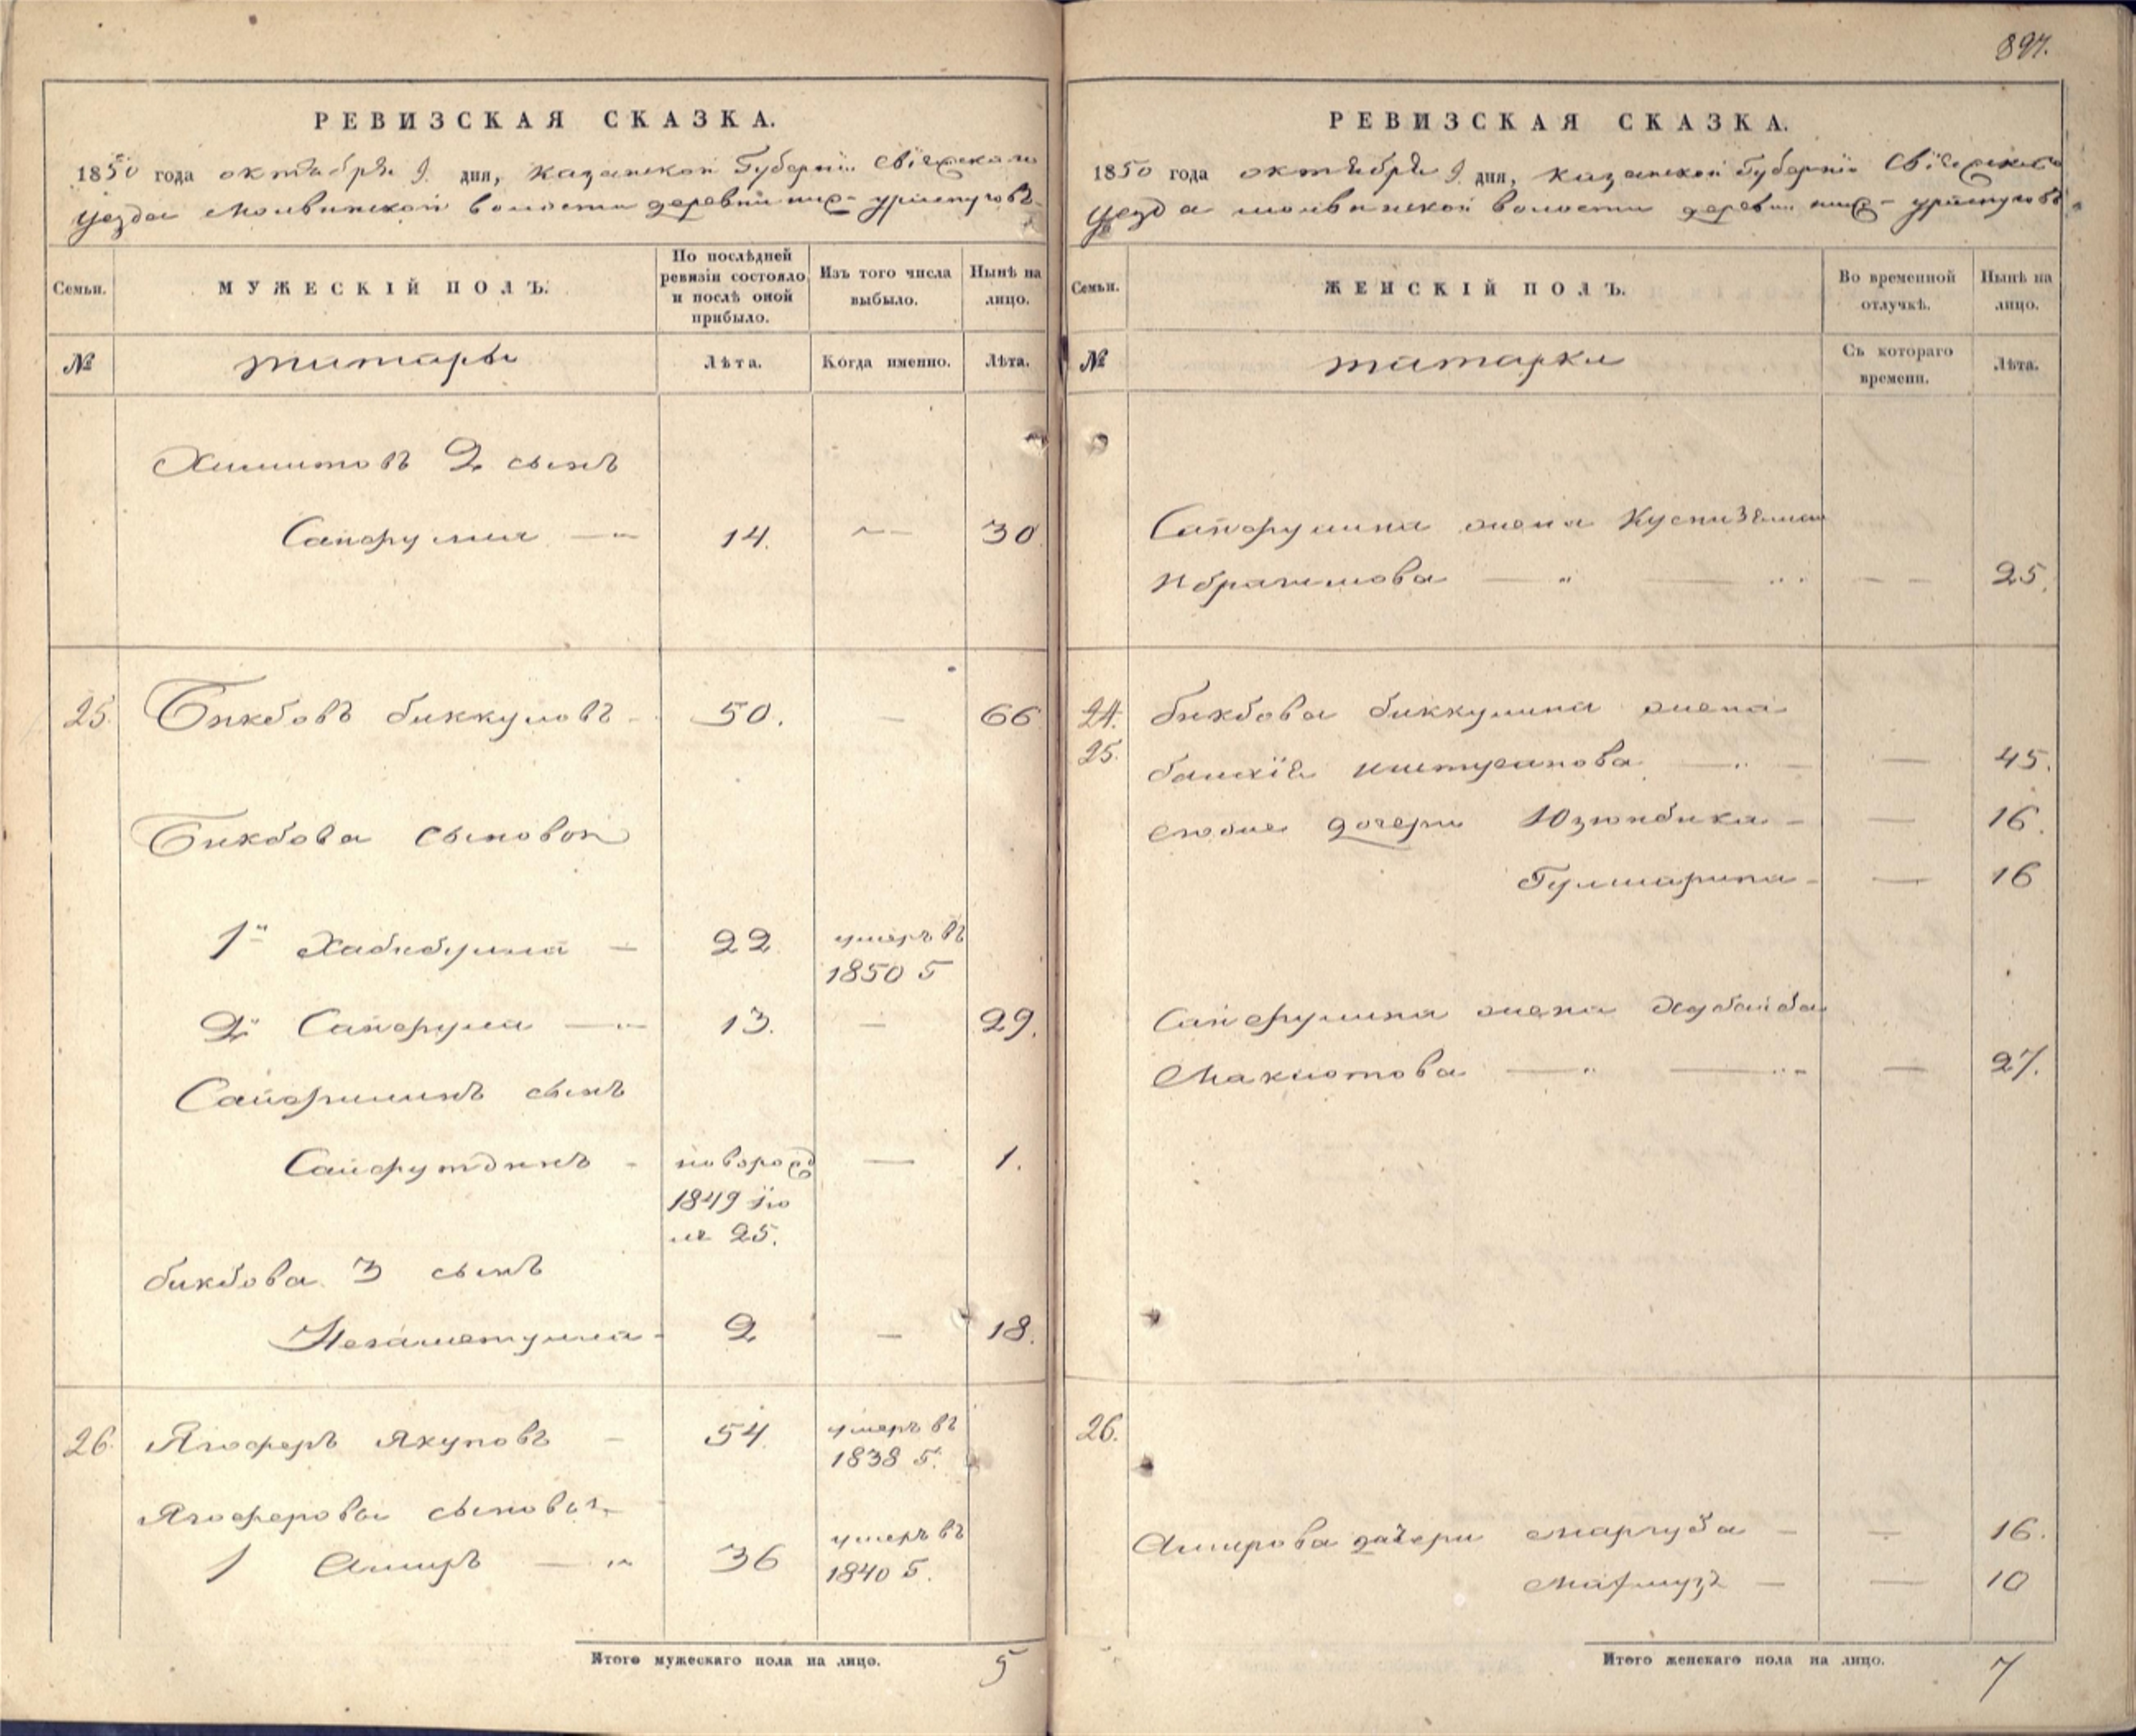 897.
РЕВИЗСКАЯ СКАЗКА.
1850 года октября 9 дня, Казанской Губернiи Свiяжскаго
уезда Молвинской волости деревни ниж-
Семьи.
МУЖЕСКІЙ ПОЛЪ.
По послѣдней ревизіи состояло и послѣ оной прибыло.
Изъ того числа выбыло.
Нынѣ на лицо.
№
татары
Лѣта.
Когда именно.
Лѣта.
Хамитовъ 2 сынъ
Сайфулла 14. 30
25. Бикбовъ биккуловъ 50. 66
Бикбова сыновья
1й Хабибулла 22 умеръ въ
1850 г
2й Сайфулла 13. 29.
сынъ
Сайфутдинъ новорожд 1.
1849 ію
ля 25.
бикбова 3 сынъ
Незаметулла 2 18.
26. Ягоферъ Якуповъ 54. умеръ въ
1838 г.
Ягоферовы сыновья
1 Амиръ 36 умеръ въ
1840 г.
Итого мужескаго пола на лицо. 5
РЕВИЗСКАЯ СКАЗКА.
1850 года октября 9 дня, Казанской Губернiи Свiяжскаго
уезда молвинской волости деревни ниж-
Семьи.
ЖЕНСКІЙ ПОЛЪ.
Во временной отлучкѣ.
Нынѣ на лицо.
№
татарки
Съ котораго времени.
Лѣта.
Сайфуллина жена
Ибрагимова 25.
24. бикбова биккулина жена
25. 45.
дочери Юзюкбика 16.
16
Сайфуллина жена Хубайба
Махмотова 27.
26.
Амирова дочери Маргуба 16.
10
Итого женскаго пола на лицо. 7